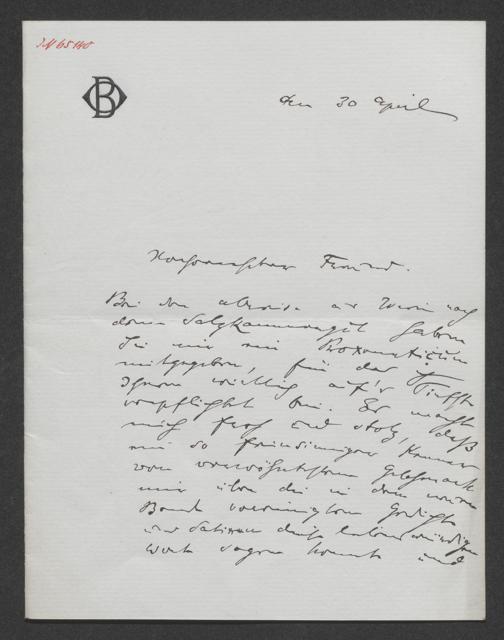 I.N 65140
den 30 April
Hochverehrter Freund.
Bei der Abreise aus Wien nach
dem Salzkammergut haben
Sie mir ein
mitgegeben, für das ich
Ihnen wirklich auf's Tiefste
verpflichtet bin. Es macht
mich froh und stolz, daß
ein so feinsinniger Kenner
von verwöhntestem Geschmack
mir über die in dem neuen
Band vereinigten Gedichte
und Satiren diese liebenswürdigen
Worte sagen konnte und